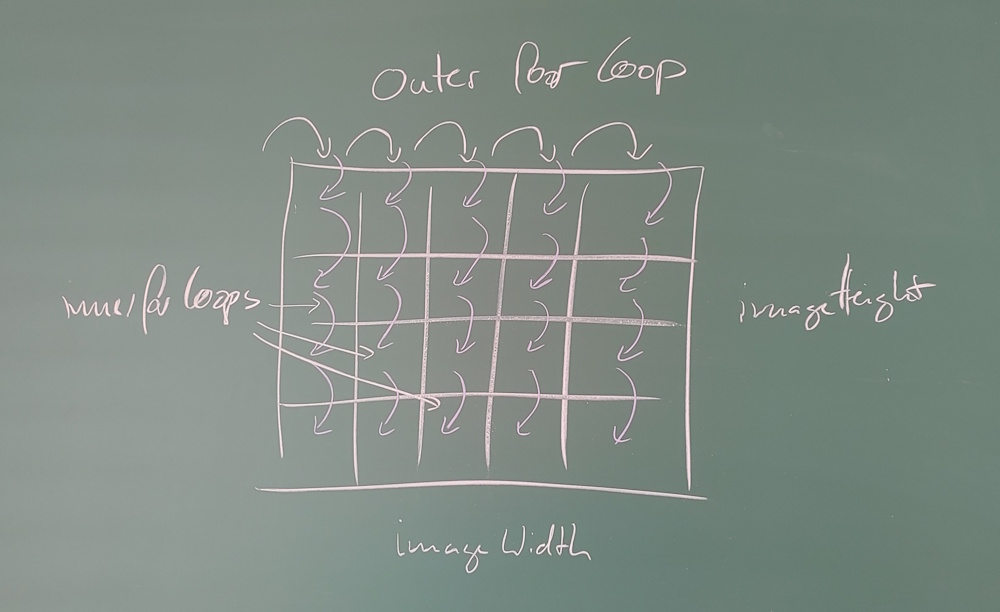 Outer For Loop
inner for loops
imageHeight
imageWidth